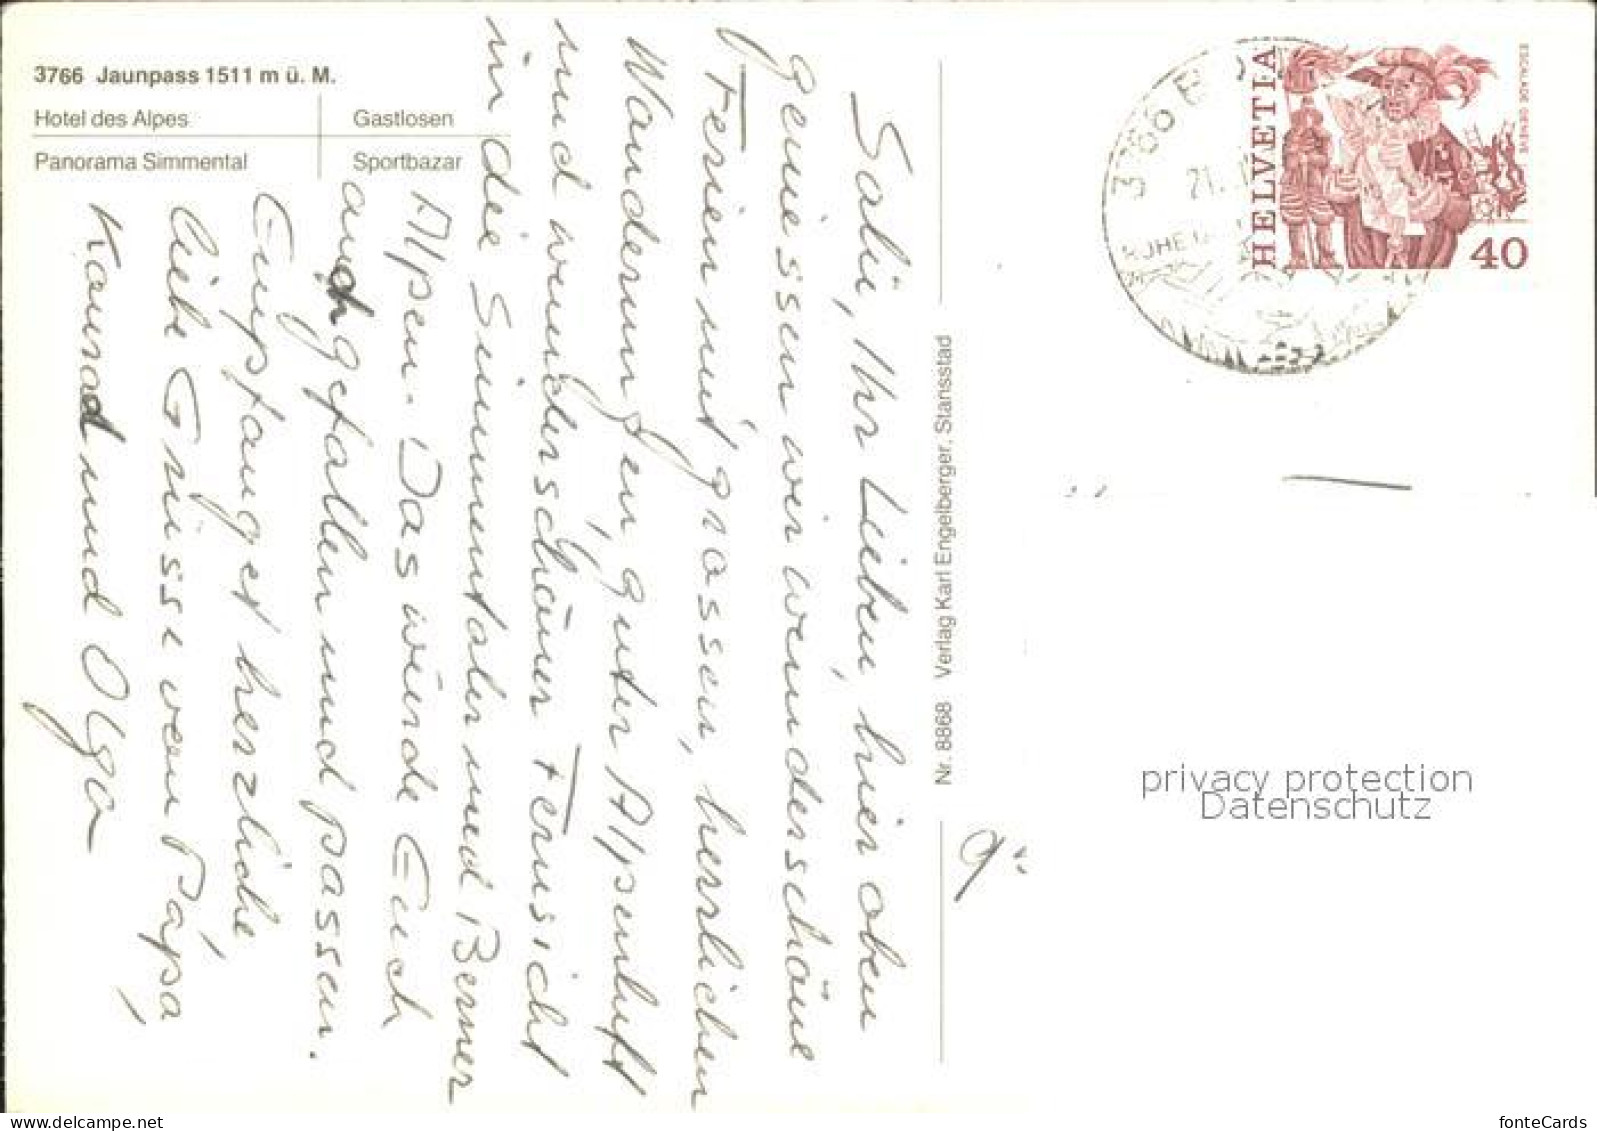 3766 Jaunpass 1511 m ü. M.
Hotel des Alpes
Gastlosen
Panorama Simmental
Sportbazar
Salü, Ihr Lieben, hier oben
geniessen wir wunderschöne
Ferien mit grossen, herrlichen
Wanderungen, guter Alpenluft
und wunderschöner Fernsicht
in die Simmentaler und Berner
Alpen. Das würde Euch
auch gefallen und passen.
Empfanget herzliche,
liebe Grüsse vom Pápa,
Konrad und Olga
Nr. 8868 Verlag Karl Engelberger, Stansstad
HELVETIA
ESCALADE GENÈVE
40
privacy protection
Datenschutz
fonteCards
www.delcampe.net